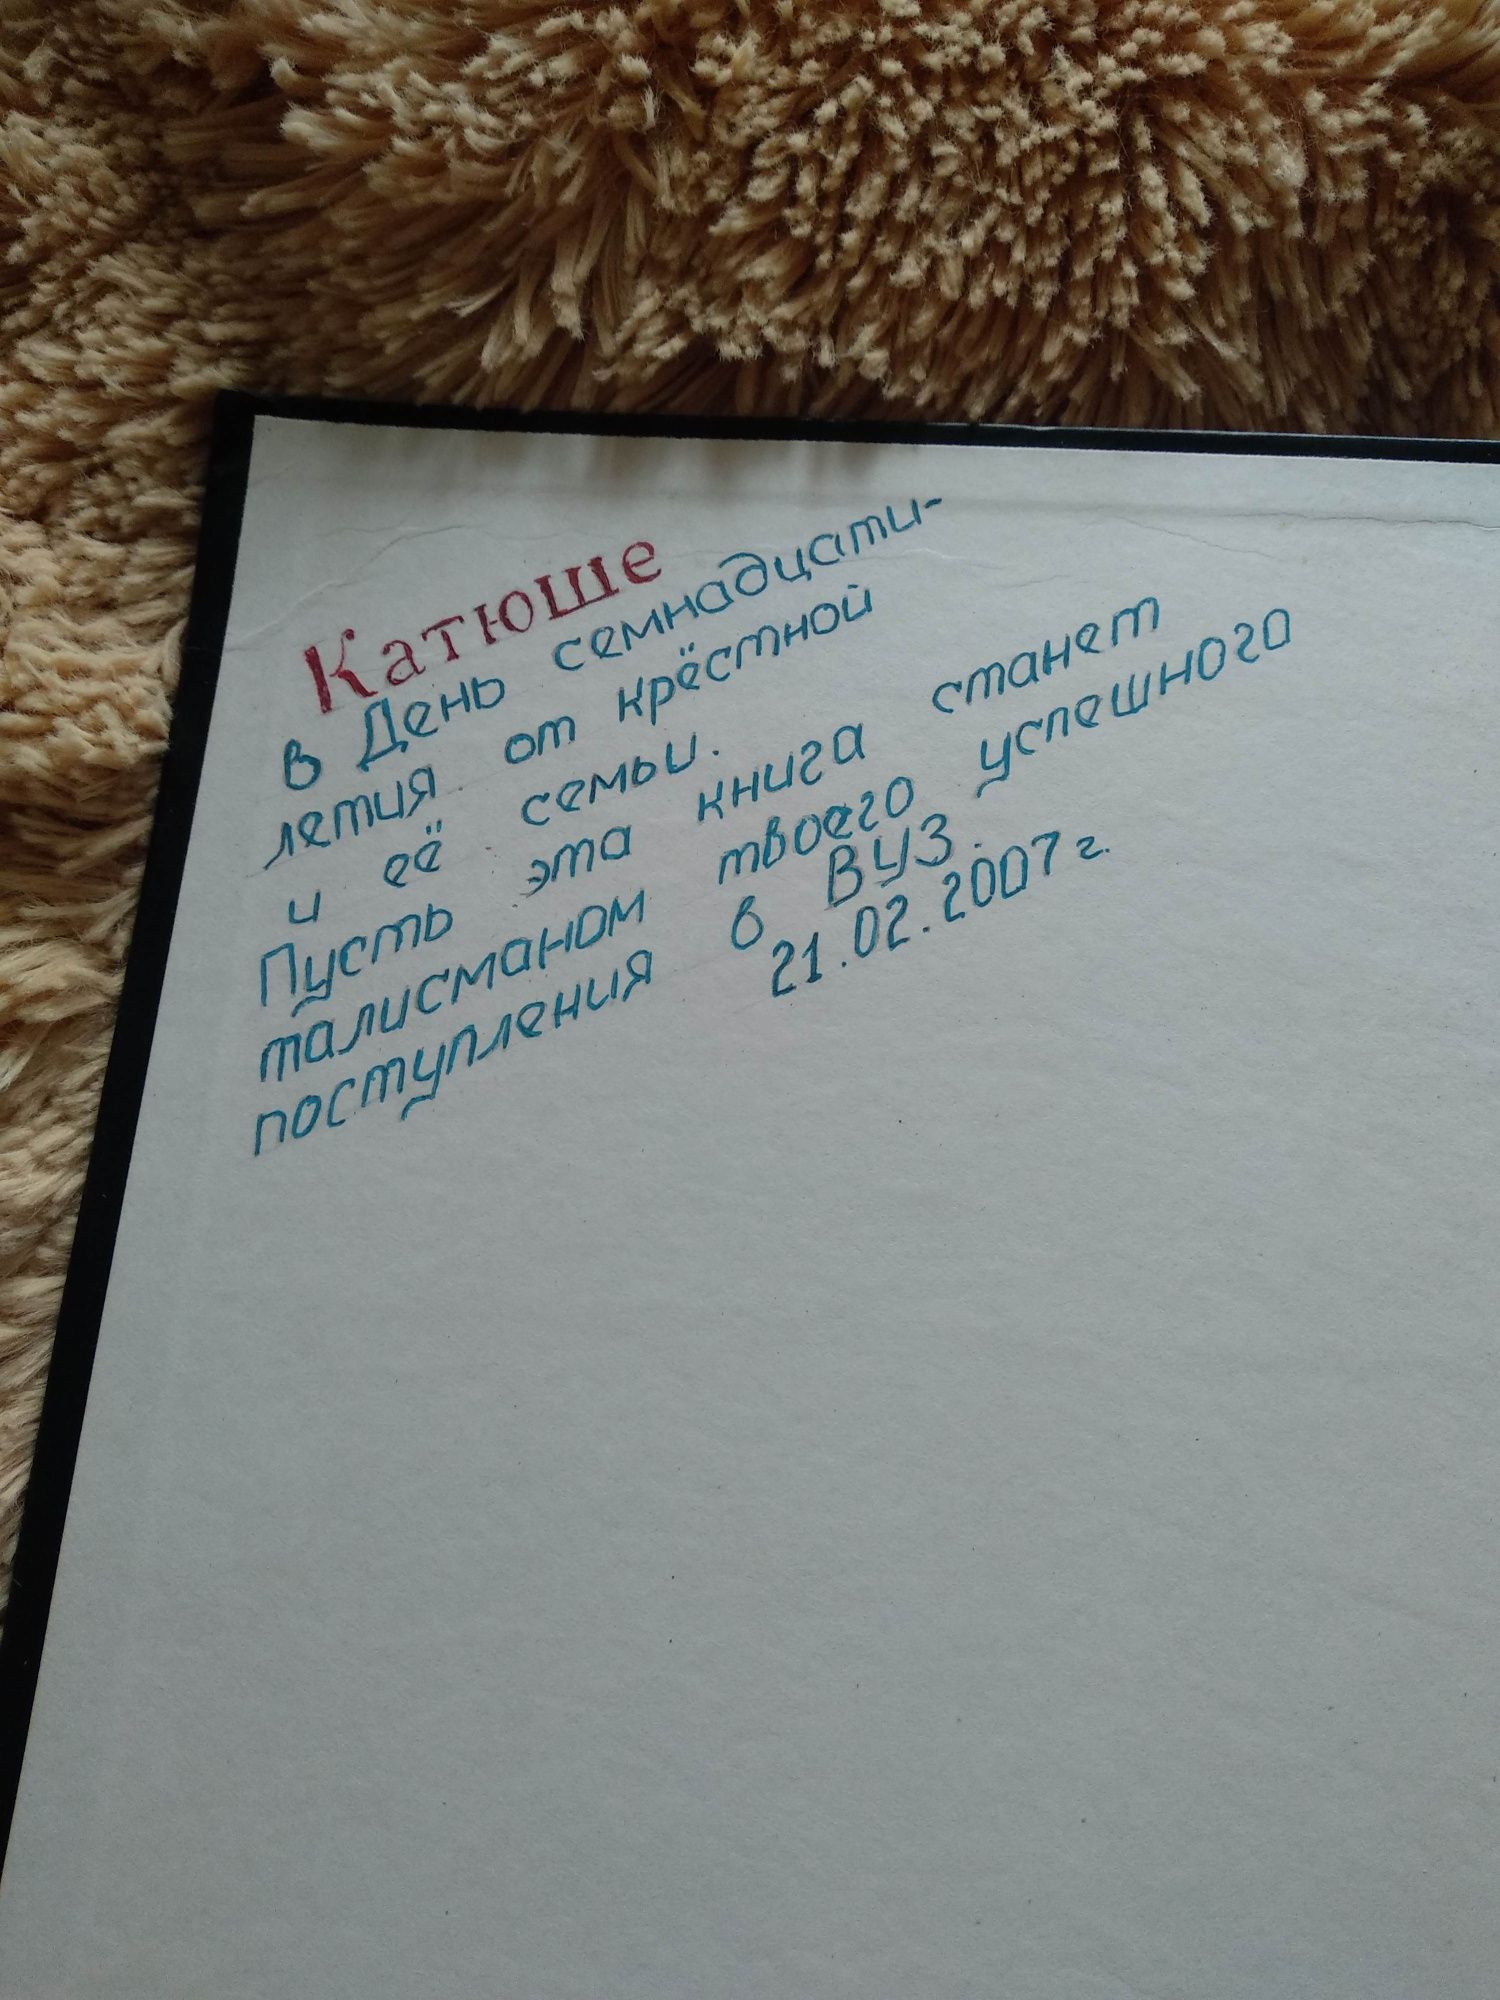 Катюше
в День семнадцати-
летия от крёстной
и её семьи.
Пусть эта книга станет
талисманом твоего успешного
поступления в ВУЗ.
21.02.2007 г.